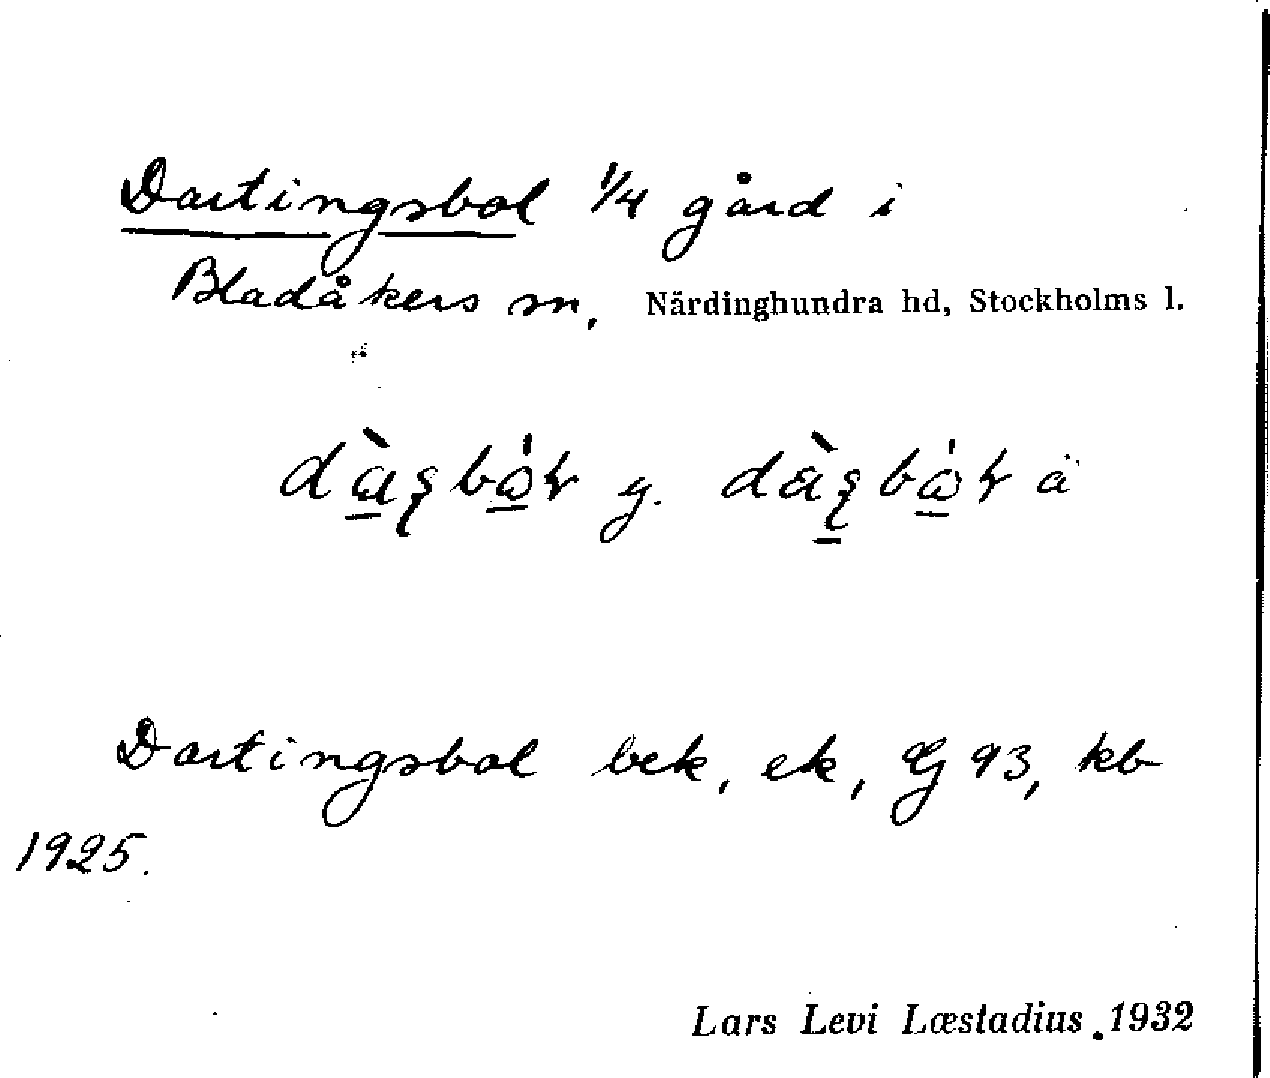 Dartingsbol 1/4 gård i
Bladåkers sn, Närdinghundra hd, Stockholms l.
y. ä
Dartingsbol bek, ek, GJ 93, kb
1925.
Lars Levi Læstadius. 1932